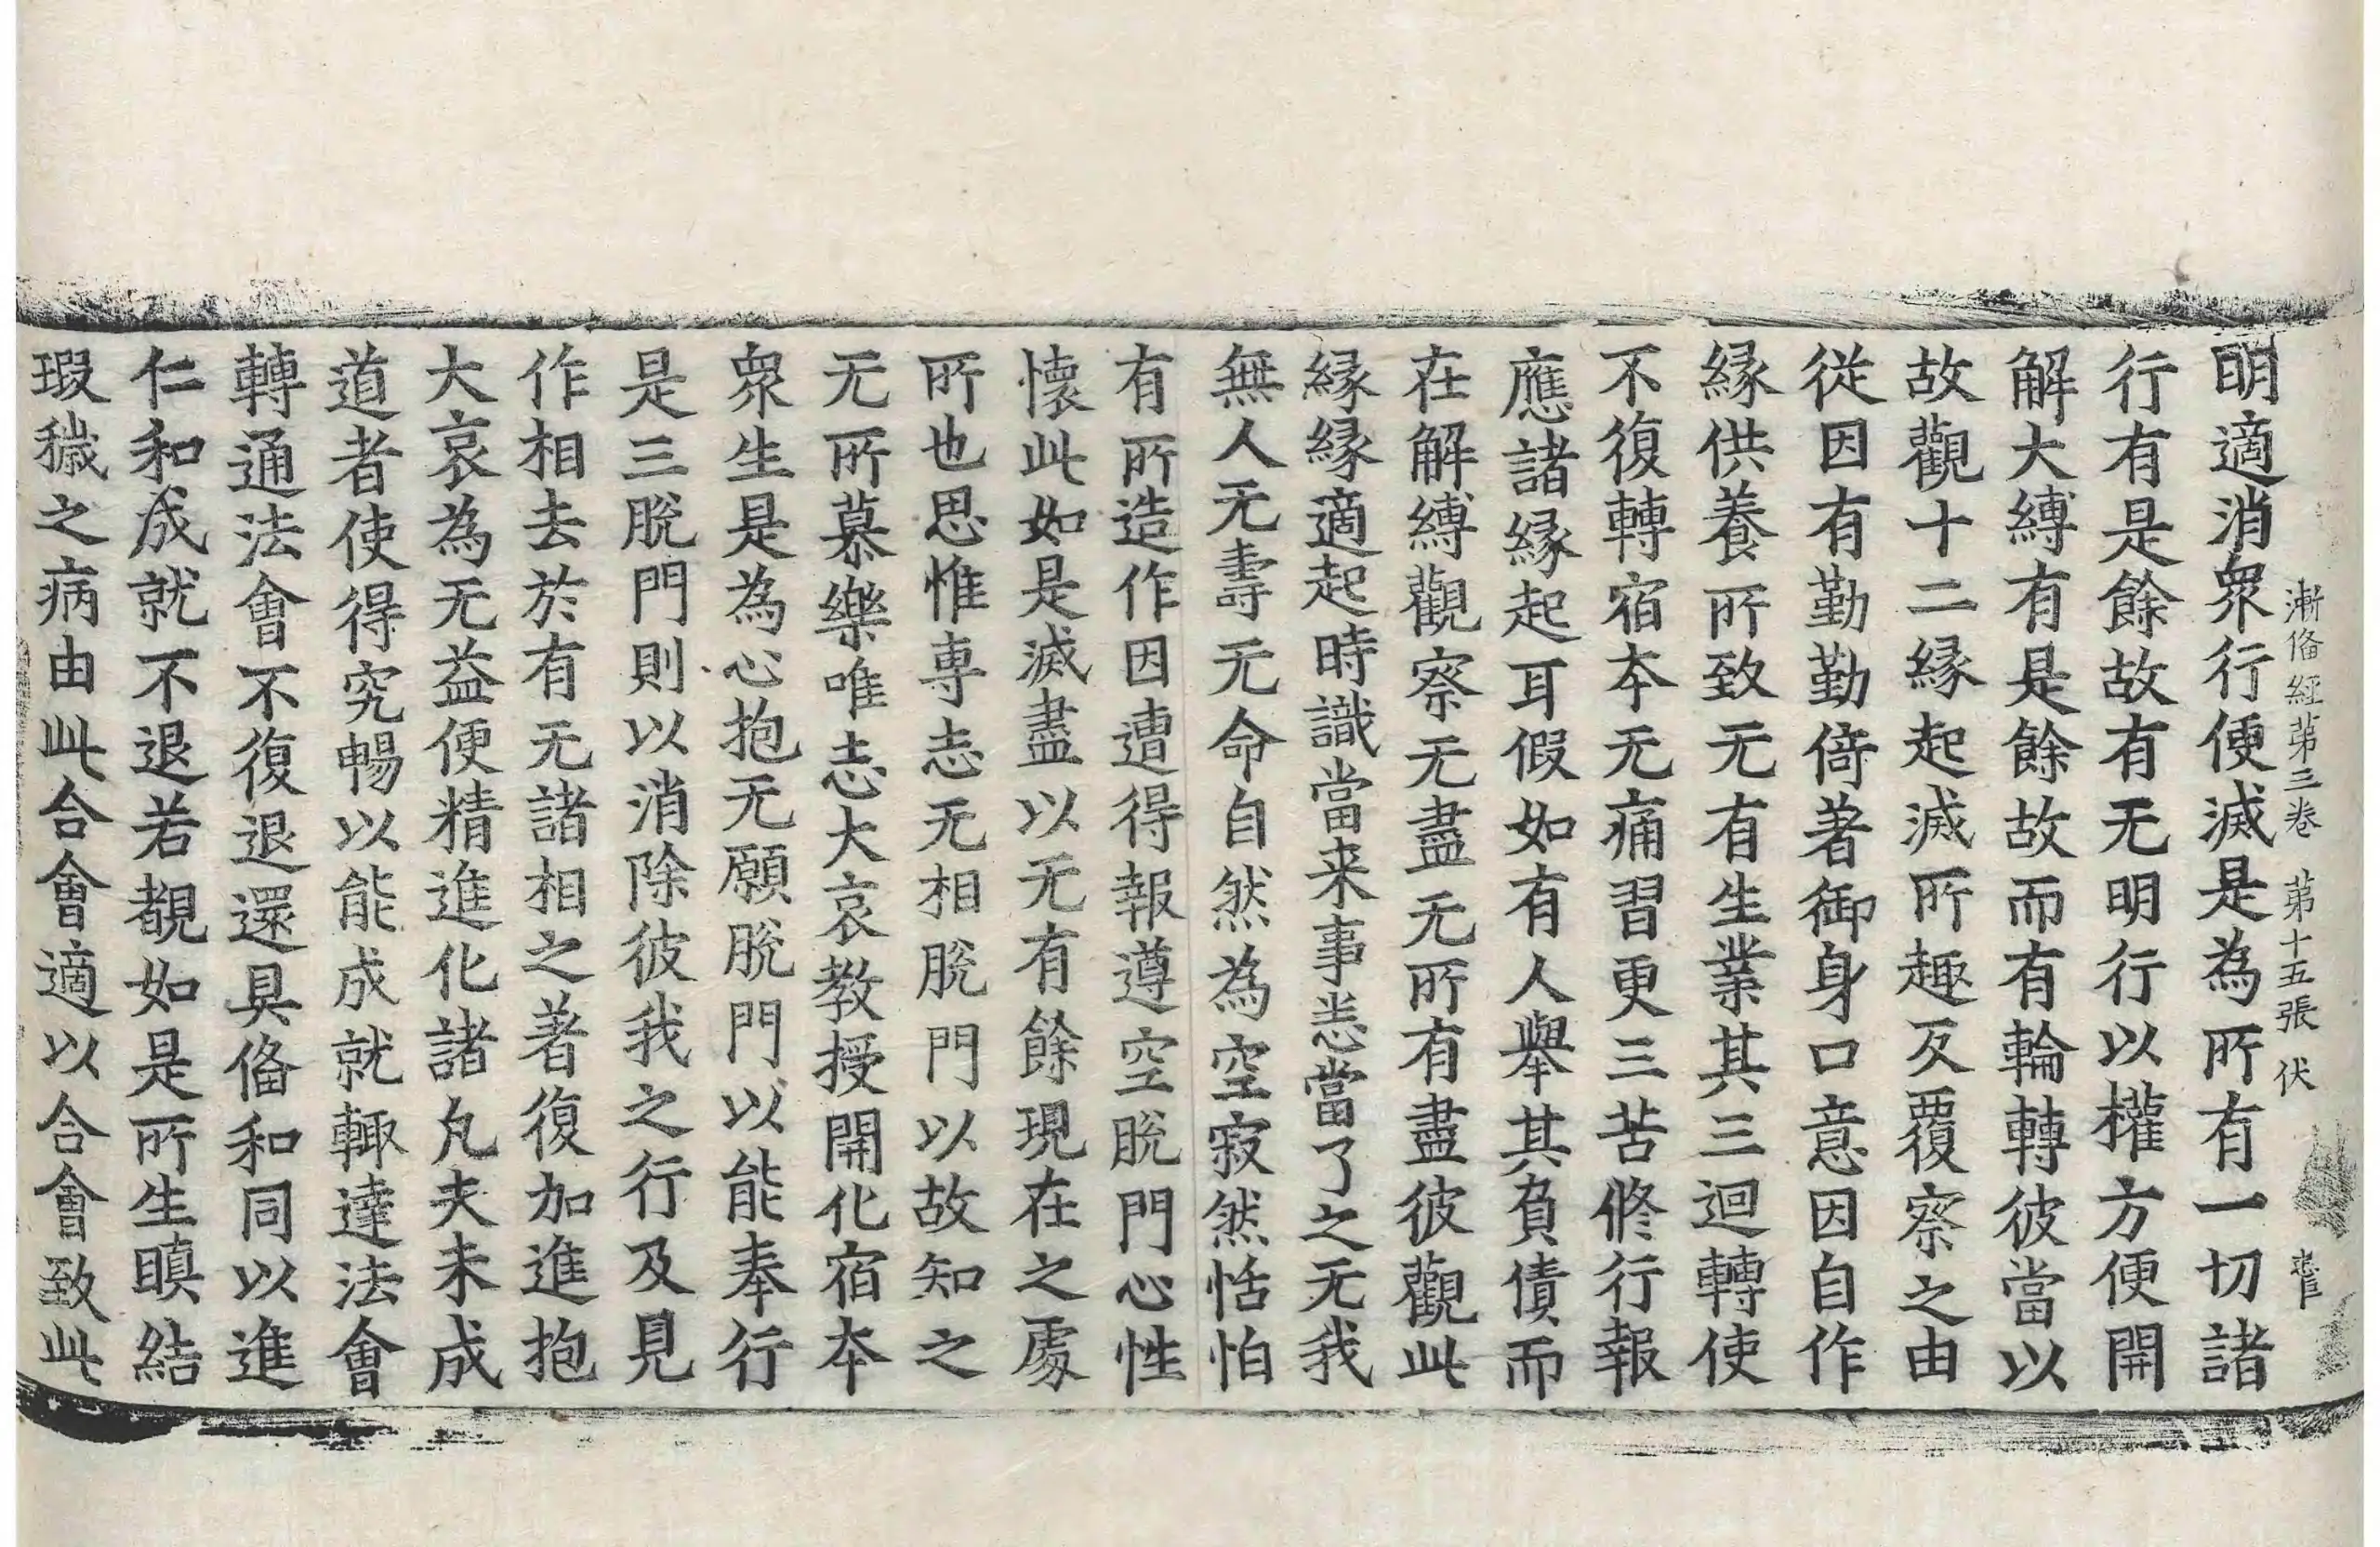 漸俻經第三卷 第十五張 伏
明適消眾行便滅是為所有一切諸
行有是餘故有无明行以權方便開
解大縛有是餘故而有輪轉彼當以
故觀十二緣起滅所趣反覆察之由
從因有勤勤倚著御身口意因自作
緣供養所致无有生業其三迴轉使
不復轉宿本无痛習更三苦修行報
應諸緣起耳假如有人舉其負債而
在解縛觀察无盡无所有盡彼觀此
緣緣適起時識當来事恙當了之无我
無人无壽无命自然為空寂然恬怕
有所造作因遭得報遵空脫門心性
懷此如是滅盡以无有餘現在之處
所也思惟専志无相脫門以故知之
无所慕樂唯志大哀教授開化宿本
眾生是為心抱无願脫門以能奉行
是三脫門則以消除彼我之行及見
作相去於有无諸相之著復加進抱
大哀為无益便精進化諸凢夫未成
道者使得究暢以能成就輙達法會
轉通法會不復退還具俻和同以進
仁和成就不退若覩如是所生瞋結
瑕穢之病由此合會適以合會致此